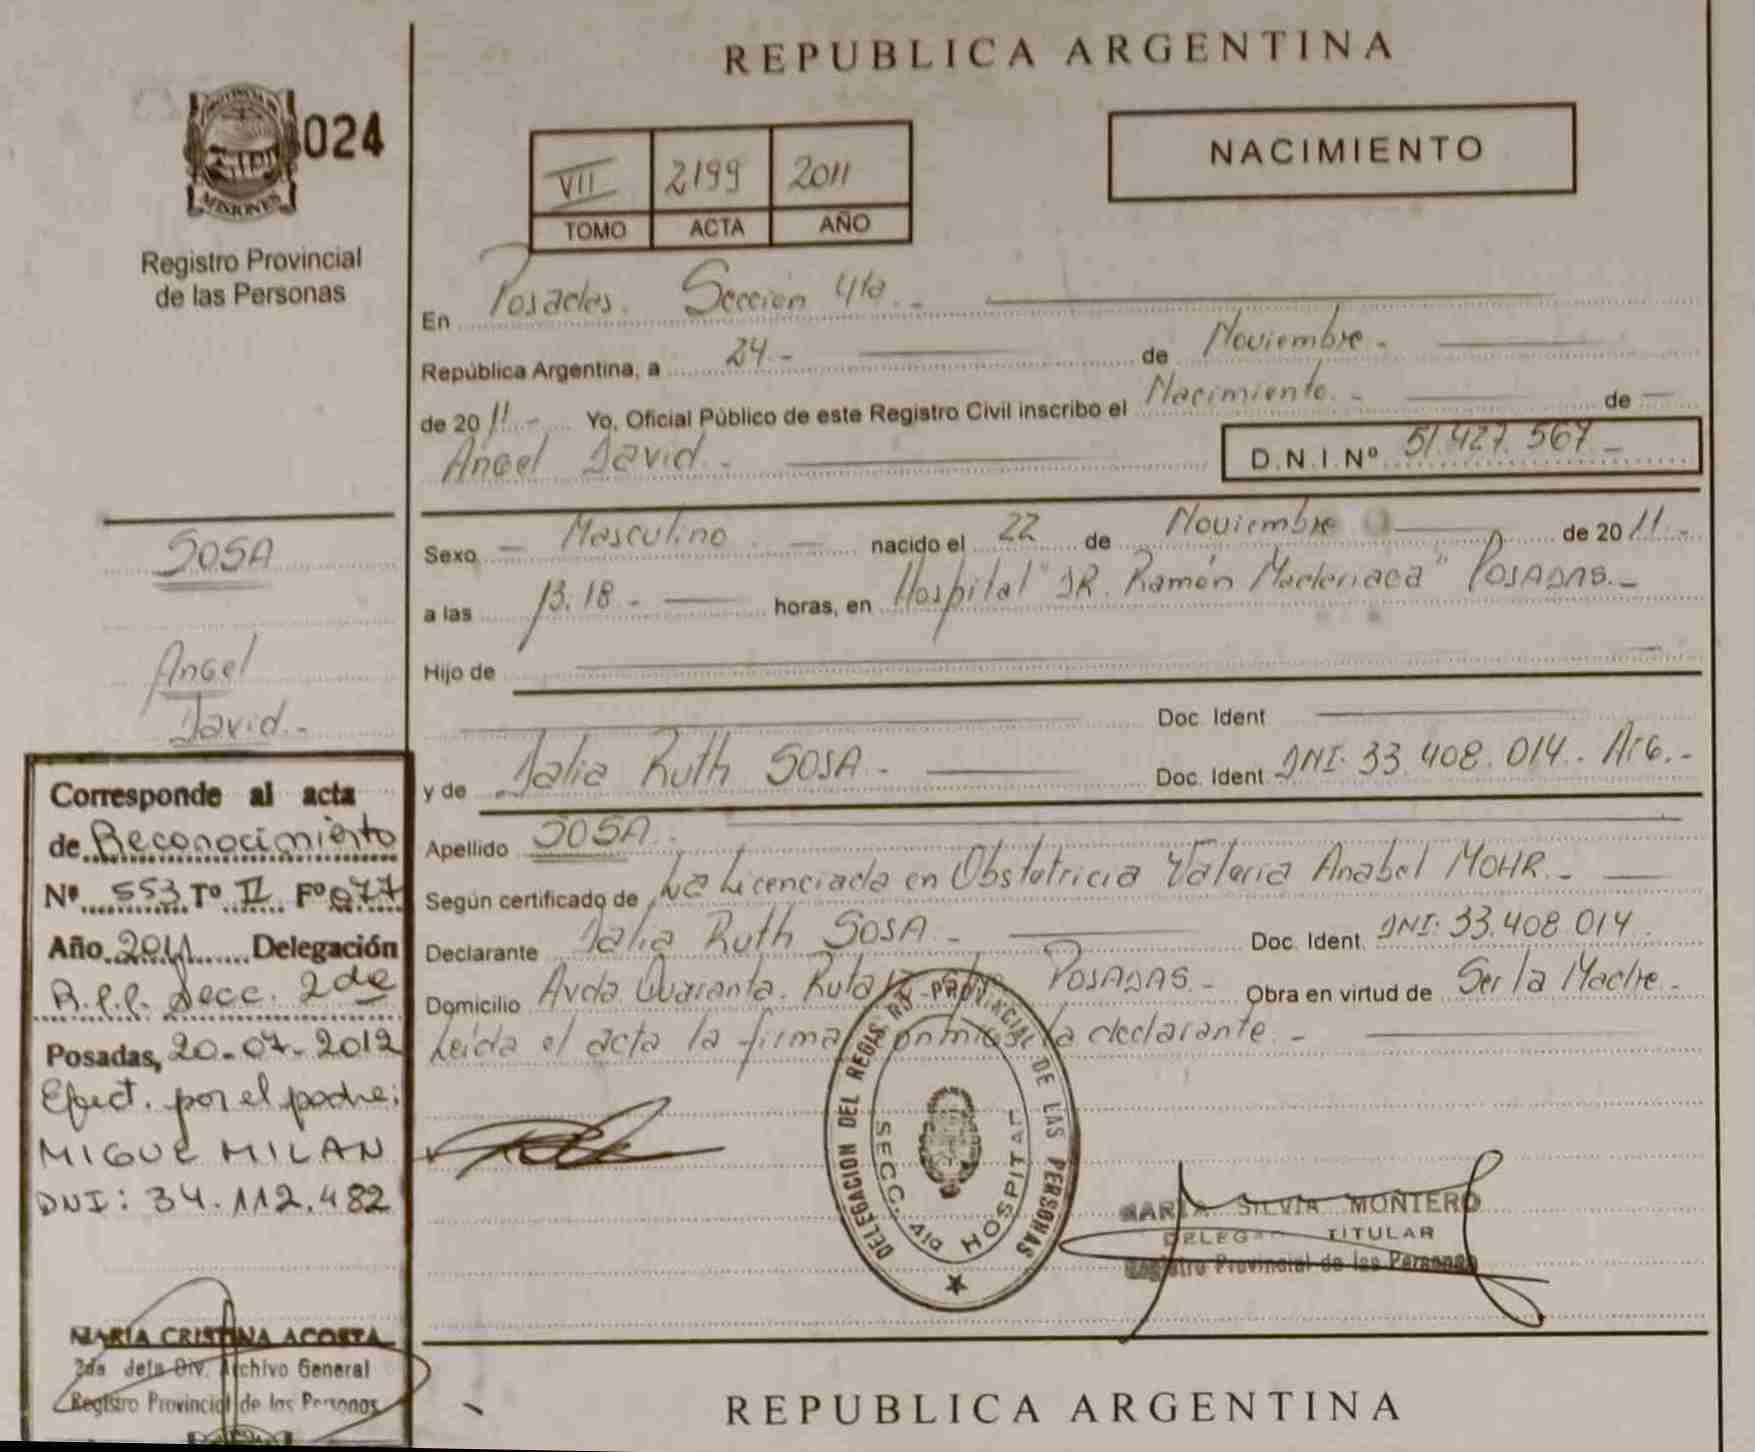 REPUBLICA ARGENTINA
MISIONES
024
Registro Provincial
de las Personas
VII 2199 2011
TOMO ACTA AÑO
NACIMIENTO
En Posadas. Sección 4ta.-
República Argentina, a 24.- de Noviembre.-
de 2011.- Yo, Oficial Público de este Registro Civil inscribo el Nacimiento.- de —
Angel David.- D.N.I.Nº 51.427.567-
SOSA
Angel
David.-
Sexo — Masculino.— nacido el 22 de Noviembre de 2011.-
a las 13.18.- horas, en Hospital "DR. Ramón Madariaga" POSADAS.-
Hijo de
Doc. Ident
y de Dalia Ruth SOSA.- Doc. Ident DNI. 33.408.014.- Arg.-
Apellido SOSA.
Según certificado de La Licenciada en Obstetricia Valeria Anabel MOHR.-
Declarante Dalia Ruth SOSA.- Doc. Ident. DNI. 33.408.014.
Domicilio Avda Quaranta. Ruta POSADAS.- Obra en virtud de Ser la Madre.-
Leída el acta la firma conmigo la declarante.-
Corresponde al acta
de Reconocimiento
Nº 553 Tº II Fº 077
Año 2011 Delegación
R.P.P. Secc. 2da
Posadas, 20-07-2012
Efect. por el padre:
MIGUE MILAN
DNI: 34.112.482
MARIA CRISTINA ACOSTA
Div. Archivo General
Registro Provincial de las Personas
DELEGACION DEL REGIS. PROVINCIAL DE LAS PERSONAS
SECC. 4ta HOSPITAL
MARIA SILVIA MONTERO
TITULAR
Registro Provincial de las Personas
REPUBLICA ARGENTINA